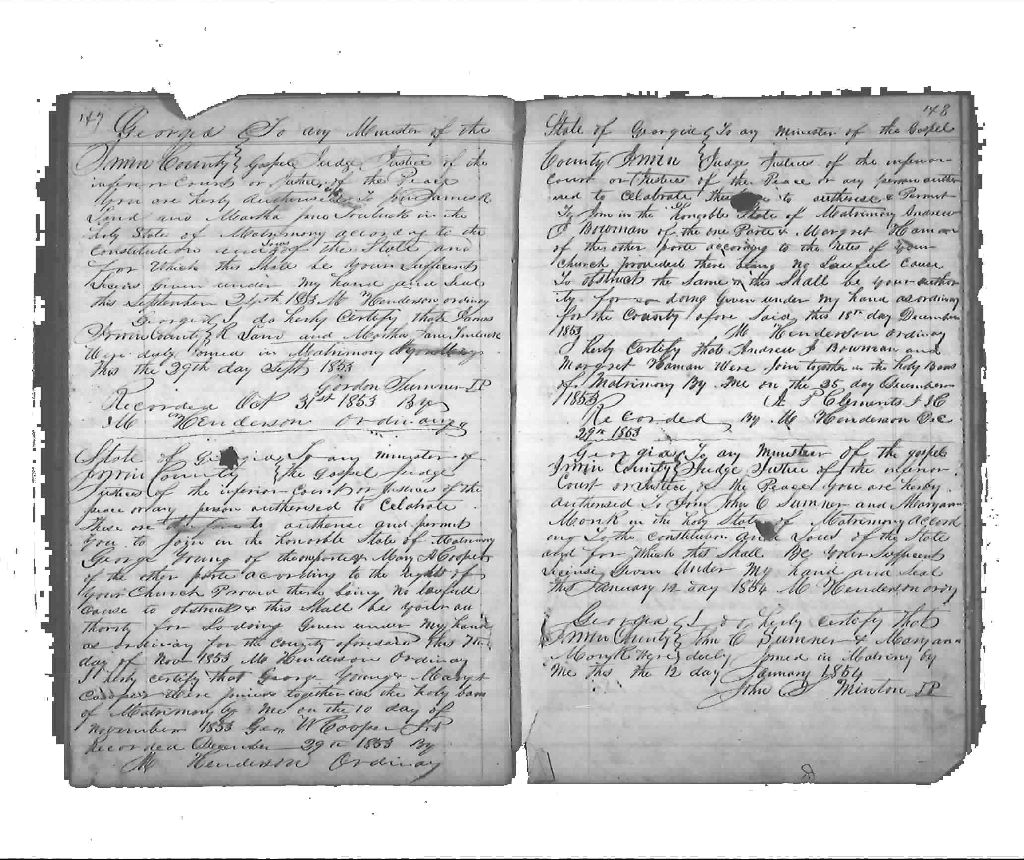 147
Georgia } To any Minister of the
Irwin County } Gospel Judge Justice of the
inferior Court or Justice of the Peace
You are herby Authorised To Join James R
Land and Martha Jane in the
holy State of Matrimony according to the
Constitution and Laws of the State and
for Which this Shall be Your Sufficient
given under my hand and Seal
this September 24th 1853 M Henderson ordinary
Georgia } I do herby Certify that James
Irwin County } R Land and Martha Jane
Were duly Joined in Matrimony
this the 29th day Sept 1853
Gordon Sumner JP
Recorded Oct 31st 1853 By
M Henderson Ordinary
State of Georgia } To any minister of
Irwin County } the Gospel Judge
Justices of the inferior Court or Justices of the
peace or any person authorised to Celebrate
These are to authorise and permit
you to Join in the honorble State of Matrimony
George Young of the one parte & Mary A Cooper
of the other parte according to the Rights of
your Church Provid there being no lawfull
Cause to obstruct & this Shall be your au
thority for So doing Given under My hand
as ordinary for the County aforesaid this
day of Nov 1853 M Henderson Ordinary
I herby Certify that George Young & Mary A
Cooper Were Joined together in the holy bans
of Matrimony by Me on the 10 day of
November 1853 Geo W Cooper
Recorded December 29th 1853 By
M Henderson Ordinary
148
State of Georgia } To any minister of the Gospel
County Irwin } Judge Justices of the inferior
Court or Justices of the Peace or any person author
ised to Celebrate These to autherise & Permit
To Join in the honorble State of Matrimony Andrew
J Bowman of the one Parte & Margret Haman
of the other parte according to the Rites of your
Church provided there being no Lawful Cause
To obstruct the Same & this Shall be your author
ity for so doing Given under my hand as ordinary
for the County afore Said this 18th day December
1853 M Henderson Ordinary
I herby Certify that Andrew J Bowman and
Margret Haman Were Join together in the Holy Bans
of Matrimony By Me on the 25 day December
1853 A P Clements J I C
Recorded By M Henderson
29th 1853
Georgia } To any Ministeer of the gospel
Irwin County } Judge Justice of the
Court or Justice of the Peace You are herby
autherised To Join John C Sumner and Maryann
Monk in the holy State of Matrimony accord
ing To the constitution and Laws of the State
and for Which this Shall Be Your Sufficient
License Given Under My hand and Seal
this January 12 day 1854 M Henderson ordy
Georgia } I do herby certify that
Irwin County } John C Sumner & Maryann
Monk Were duly Joined in Matrimony by
Me this the 12 day January 1854
John S Minton JP